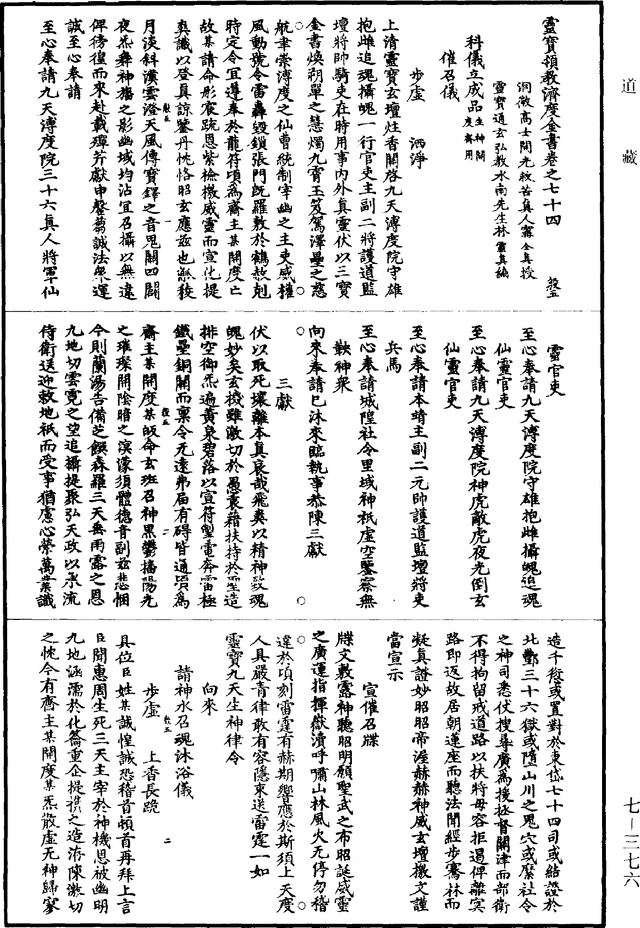 道藏
靈寶領教濟度金書卷之七十四
洞微高士開光救苦真人甯全真授
靈寶通玄弘教水南先生林靈真編
科儀立成品生神開度齋用
催召儀
步虛 洒淨
上清靈寶玄壇炷香關啓九天溥度院守雄
抱雌追魂攝魄一行官吏主副二將護道監
壇將帥騎吏在時用事內外真靈伏以三寶
金書煥朔單之慧燭九霄玉笈駕澤壘之慈
航聿崇溥度之仙曾統制宰幽之主吏威權
風動號令雷轟毀鎖張門既羅敷於鶴赦剋
時定令宜遵奉於龍符頃為齋主某開度亡
故某請命彤宸疏恩紫極檄威靈而宣化提
真識以登真諒鑒丹忱恪昭玄應茲也
月淡斜漢雲澄天風傳寶鐸之音鬼關四闢
夜炁舞神旛之影幽域均沾宜召攝以無違
俾徬徨而來赴載殫芹獻申罄葵誠法眾運
誠至心奉請
至心奉請九天溥度院三十六真人將軍仙
靈官吏
至心奉請九天溥度院守雄抱雌攝魄追魂
仙靈官吏
至心奉請九天溥度院神虎敵虎夜光倒玄
仙靈官吏
至心奉請本靖主副二元帥護道監壇將吏
兵馬
至心奉請城隍社令里域神祇虛空鑒察無
鞅神眾
向來奉請已沐來臨執事恭陳三獻
三獻
伏以取死壞離本真哀哉飛爽以精神致魂
魄妙矣玄機雖激切於愚衷藉扶持於聖造
排空御炁過黃泉碧落以宣符掣電奔雷極
鐵壘銅關而稟令无遠弗屆有礙皆通頃為
齋主某開度某皈命玄班召神黑鬱播陽光
之璀璨開陰暗之溟濛須體德音副茲悲悃
今則蘭湯告備芝饌森羅三天丕雨露之恩
九地切雲霓之望追攝提聚弘天政以承流
侍衛送迎敕地祇而受事猶慮心縈萬業識
造千愆或置對於東岱七十四司或結證於
北酆三十六獄或隨山川之鬼穴或縻社令
之神司悉仗搜尋廣為援拯督關津而部衛
不得拘留戒道路以扶將毋容拒遏俾離冥
路即返故居朝蓮座而聽法聞經步騫林而
凝真證妙昭昭帝渥赫赫神威玄壇檄文謹
當宣示
宣催召牒
牒文敷露神聽昭明願聖武之布昭誕威靈
之廣運指揮嶽瀆呼嘯山林風火无停勿稽
違於頃刻雷霆有赫期響應於斯須上天度
人具嚴青律敢有容隱束送雷霆一如
靈寶九天生神律令
向來
請神水召魂沐浴儀
步虛 上香長跪
具位臣姓某誠惶誠恐稽首頓首再拜上言
臣聞惠周生死三天主宰於神機恩被幽明
九地涵濡於化裔重企提携之造洊陳激切
之忱今有齋主某開度某炁散虛无神歸寥
七—三七六